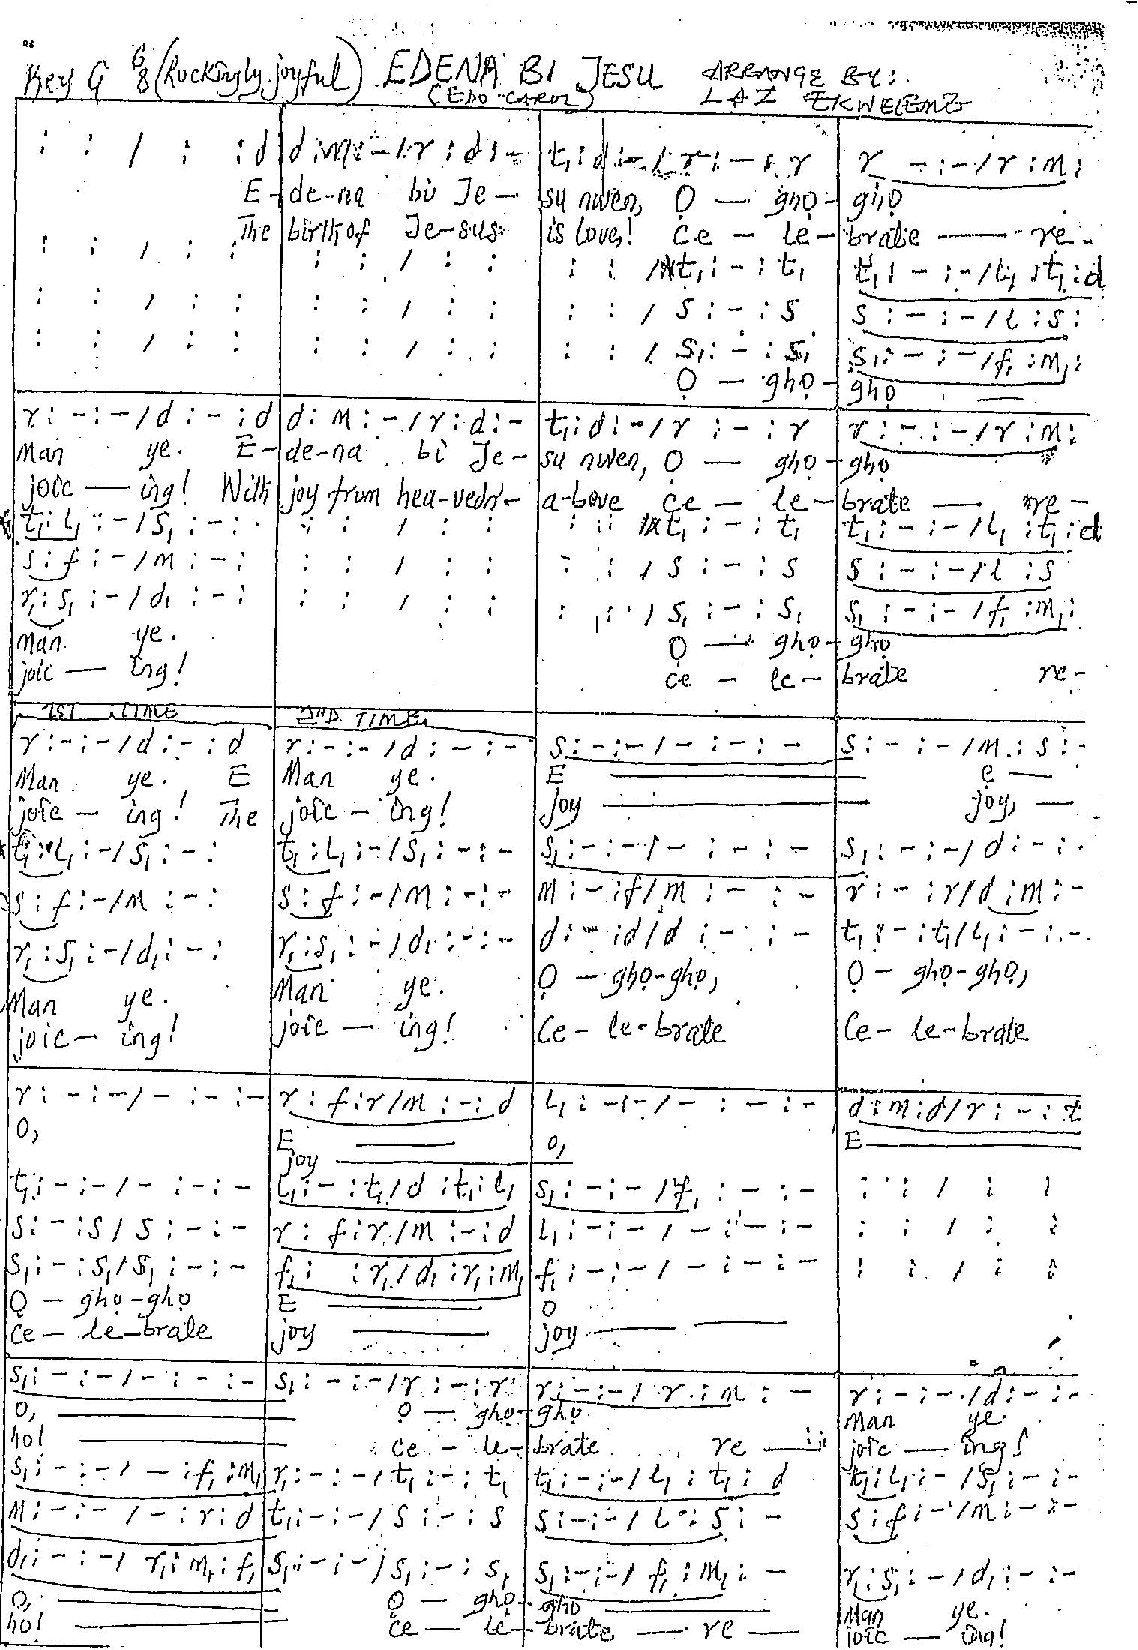 Key G 6/8 (Rockingly joyful) EDENA BI JESU ARRANGE BY:
(EDO CAROL) LAZ EKWUEME
: : / : : d | d : m : - / r : d : - | t₁ : d : - / r : - : r | r : - : - / r : m :
E- | de-na bi Je- | su nwen, Ọ — ghọ- | ghọ
The | birth of Je-sus | is love! Ce - le- | brate — re-
: : / : : | : : / : : | : : / t₁ : - : t₁ | t₁ : - : - / l₁ : t₁ : d
: : / : : | : : / : : | : : / s : - : s | s : - : - / l : s :
: : / : : | : : / : : | : : / s₁ : - : s₁ | s₁ : - : - / f₁ : m₁ :
Ọ — ghọ- | ghọ —
r : - : - / d : - : d | d : m : - / r : d : - | t₁ : d : - / r : - : r | r : - : - / r : m :
Man ye. E- | de-na bi Je- | su nwen, Ọ — ghọ- | ghọ
joic — ing! With | joy from hea-ven | a-bove ce - le- | brate — re-
t₁ : l₁ : - / s₁ : - : | : : / : : | : : / t₁ : - : t₁ | t₁ : - : - / l₁ : t₁ : d
s : f : - / m : - : | : : / : : | : : / s : - : s | s : - : - / l : s
r₁ : s₁ : - / d₁ : - : | : : / : : | : : / s₁ : - : s₁ | s₁ : - : - / f₁ : m₁ :
Man ye. | Ọ — ghọ- | ghọ
joic — ing! | ce - le- | brate re-
1ST TIME | 2ND TIME
r : - : - / d : - : d | r : - : - / d : - : - | s : - : - / - : - : - | s : - : - / m : s : -
Man ye. E | Man ye. | E — | e —
joic — ing! The | joic — ing! | joy — | joy, —
t₁ : l₁ : - / s₁ : - : | t₁ : l₁ : - / s₁ : - : - | s₁ : - : - / - : - : - | s₁ : - : - / d : - : -
s : f : - / m : - : | s : f : - / m : - : - | m : - : f / m : - : - | r : - : r / d : m : -
r₁ : s₁ : - / d₁ : - : | r₁ : s₁ : - / d₁ : - : - | d : - : d / d : - : - | t₁ : - : t₁ / l₁ : - : -
Man ye. | Man ye. | Ọ — ghọ-ghọ, | Ọ — ghọ-ghọ,
joic — ing! | joic — ing! | Ce - le-brate | Ce - le-brate
r : - : - / - : - : - | r : f : r / m : - : d | l₁ : - : - / - : - : - | d : m : d / r : - : t
O, | E — | O, | E —
joy —
t₁ : - : - / - : - : - | l₁ : - : t₁ / d : t₁ : l₁ | s₁ : - : - / f₁ : - : - | : : / : :
s : - : s / s : - : - | r : f : r / m : - : d | l₁ : - : - / - : - : - | : : / : :
s₁ : - : s₁ / s₁ : - : - | f₁ : : r₁ / d₁ : r₁ : m₁ | f₁ : - : - / - : - : - | : : / : :
Ọ — ghọ-ghọ | E — | O
Ce - le-brate | joy — | joy —
s₁ : - : - / - : - : - | s₁ : - : - / r : - : r | r : - : - / r : m : - | r : - : - / d : - : -
O, — | Ọ — ghọ- | ghọ | Man ye.
ho! | ce - le- | brate re — | joic — ing!
s₁ : - : - / - : f₁ : m₁ | r₁ : - : - / t₁ : - : t₁ | t₁ : - : - / l₁ : t₁ : d | t₁ : l₁ : - / s₁ : - : -
m : - : - / - : r : d | t₁ : - : - / s : - : s | s : - : - / l : s : - | s : f : - / m : - : -
d₁ : - : - / r₁ : m₁ : f₁ | s₁ : - : - / s₁ : - : s₁ | s₁ : - : - / f₁ : m₁ : - | r₁ : s₁ : - / d₁ : - : -
O, — | Ọ — ghọ- | ghọ — | Man ye.
ho! — | ce - le- | brate — re — | joic — ing!